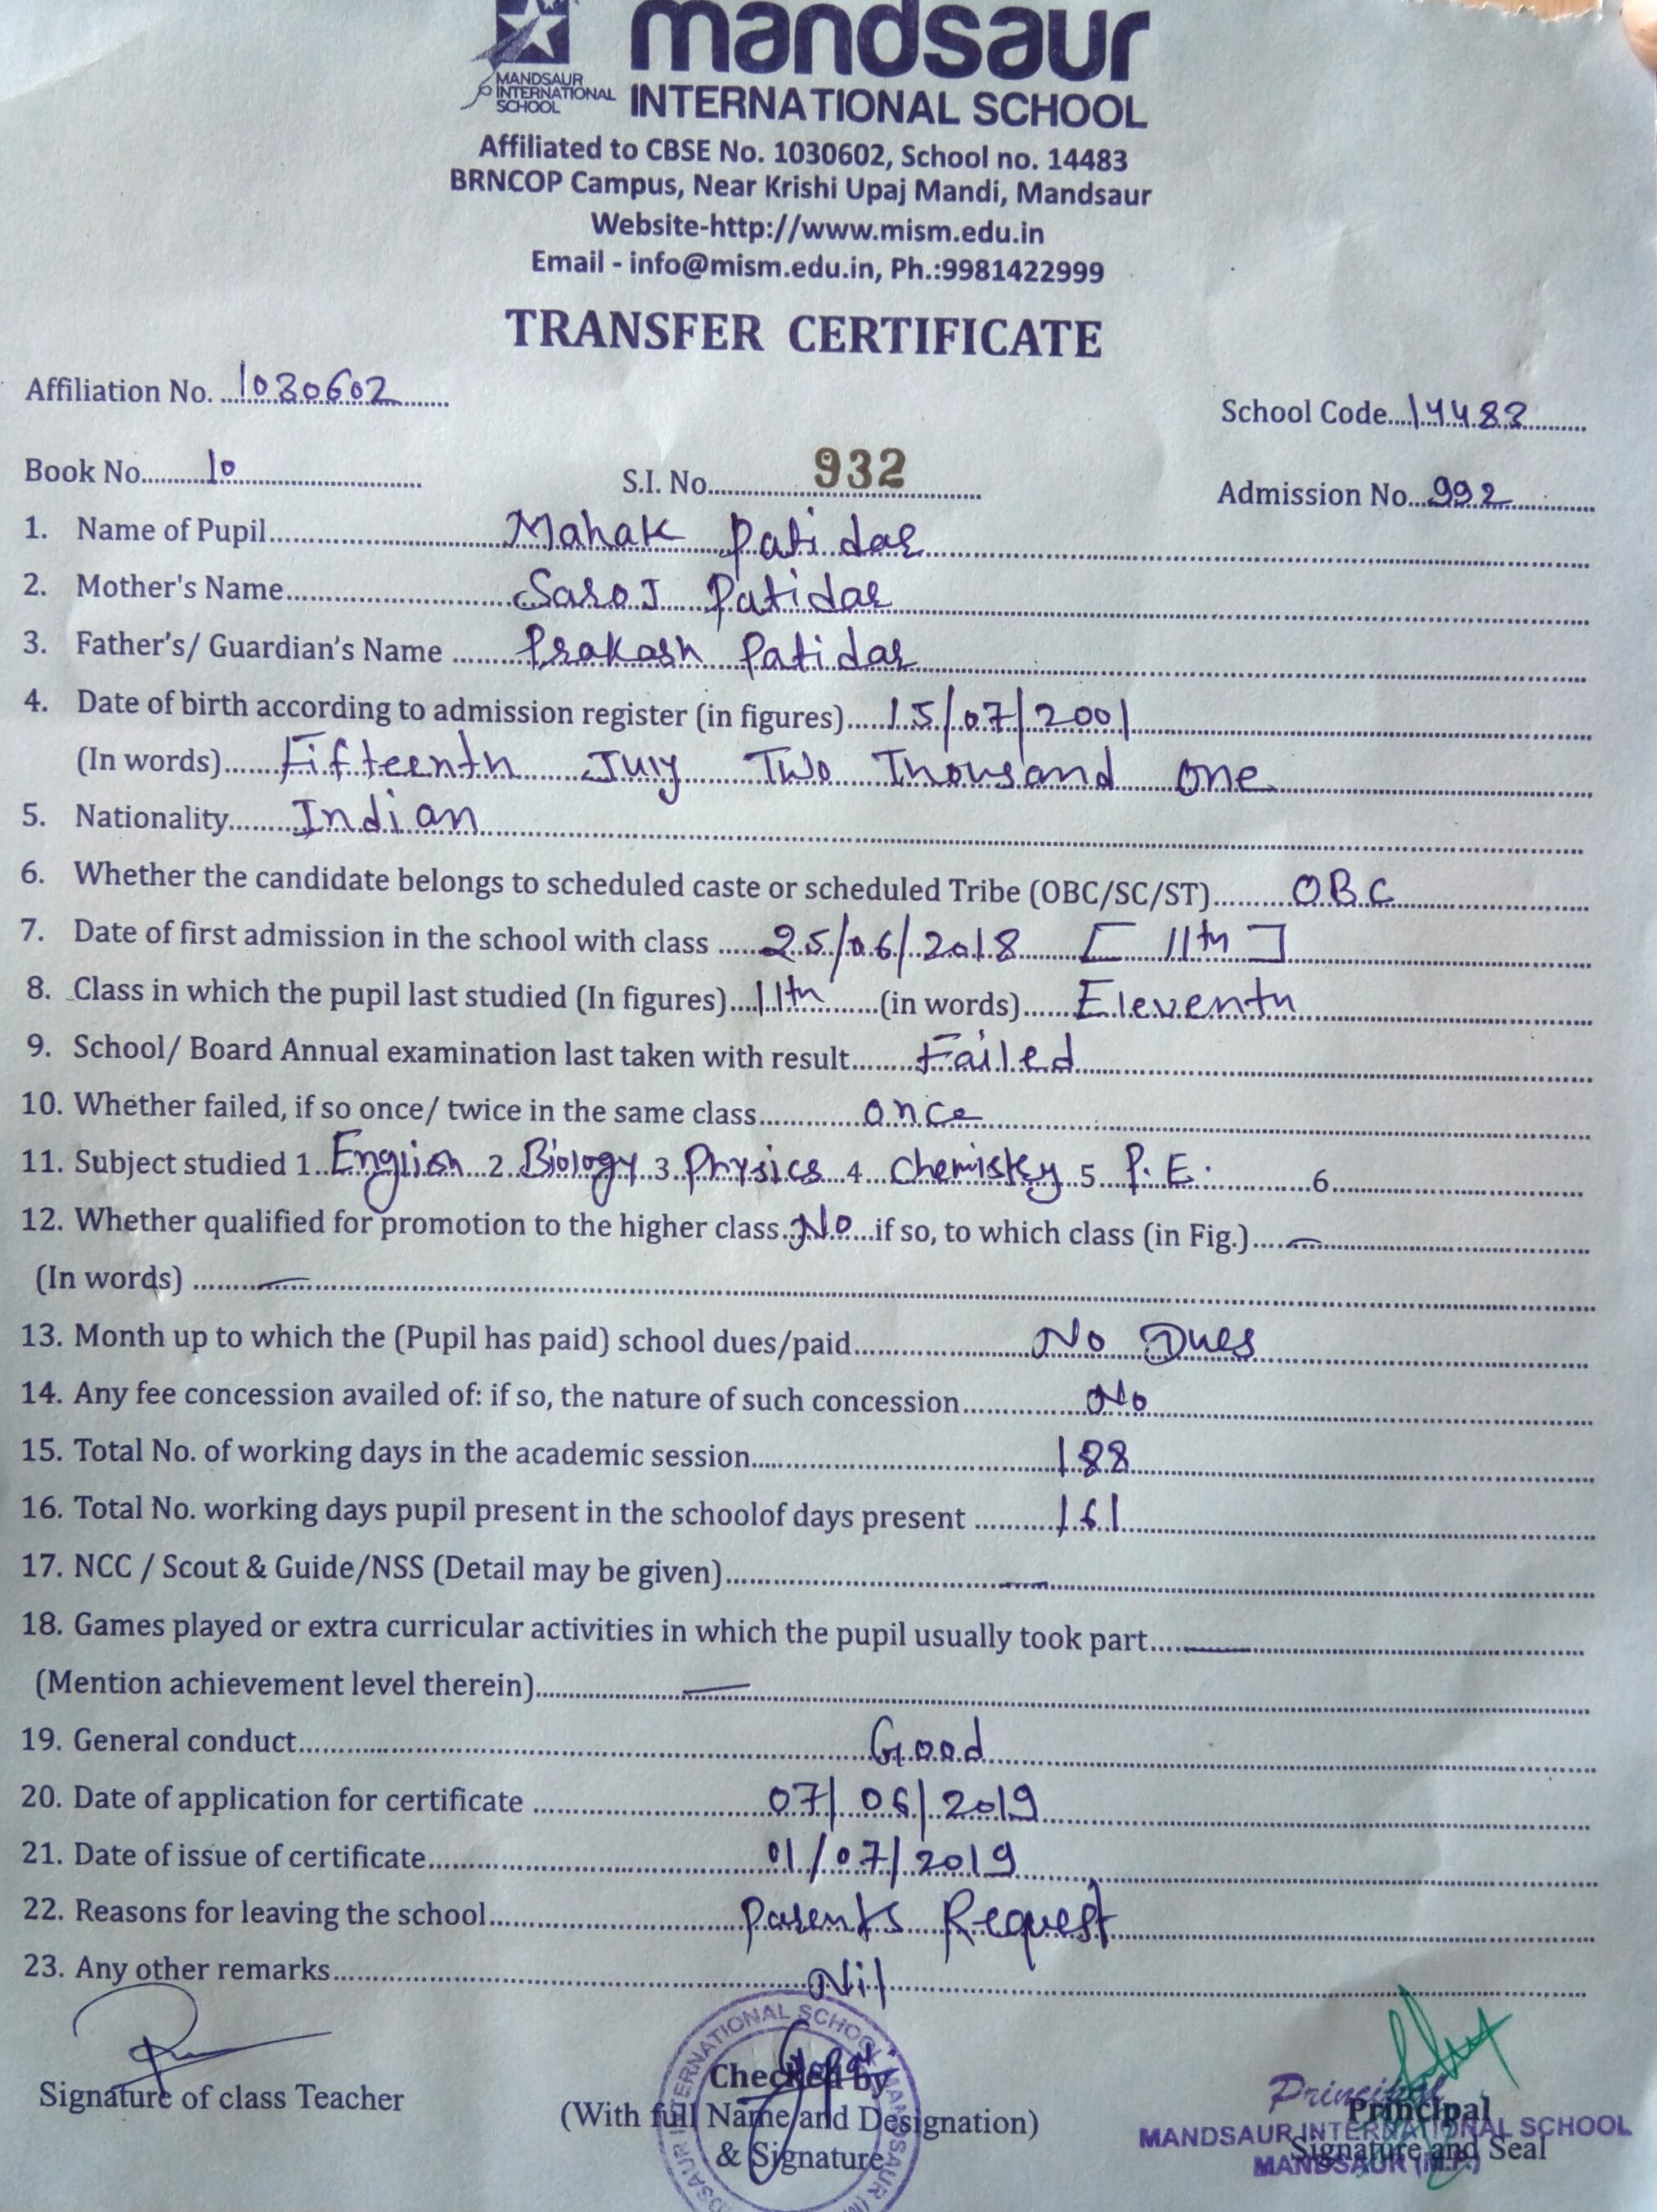 mandsaur
MANDSAUR
INTERNATIONAL
SCHOOL
INTERNATIONAL SCHOOL
Affiliated to CBSE No. 1030602, School no. 14483
BRNCOP Campus, Near Krishi Upaj Mandi, Mandsaur
Website-http://www.mism.edu.in
Email - info@mism.edu.in, Ph.:9981422999
TRANSFER CERTIFICATE
Affiliation No. 1030602
School Code 14483
Book No. 10 S.I. No. 932 Admission No. 992
1. Name of Pupil Mahak Patidar
2. Mother's Name Saroj Patidar
3. Father's/ Guardian's Name Prakash Patidar
4. Date of birth according to admission register (in figures) 15/07/2001
(In words) Fifteenth July Two Thousand One
5. Nationality Indian
6. Whether the candidate belongs to scheduled caste or scheduled Tribe (OBC/SC/ST) OBC
7. Date of first admission in the school with class 25/06/2018 [ 11th ]
8. Class in which the pupil last studied (In figures) 11th (in words) Eleventh
9. School/ Board Annual examination last taken with result Failed
10. Whether failed, if so once/ twice in the same class once
11. Subject studied 1 English 2 Biology 3 Physics 4 Chemistry 5 P.E. 6
12. Whether qualified for promotion to the higher class No if so, to which class (in Fig.) —
(In words) —
13. Month up to which the (Pupil has paid) school dues/paid No Dues
14. Any fee concession availed of: if so, the nature of such concession No
15. Total No. of working days in the academic session 188
16. Total No. working days pupil present in the schoolof days present 161
17. NCC / Scout & Guide/NSS (Detail may be given) —
18. Games played or extra curricular activities in which the pupil usually took part —
(Mention achievement level therein) —
19. General conduct Good
20. Date of application for certificate 07/06/2019
21. Date of issue of certificate 01/07/2019
22. Reasons for leaving the school Parents Request
23. Any other remarks Nil
Signature of class Teacher
Checked by
(With full Name and Designation)
& Signature
Principal
Principal
MANDSAUR INTERNATIONAL SCHOOL
Signature and Seal
MANDSAUR (M.P.)